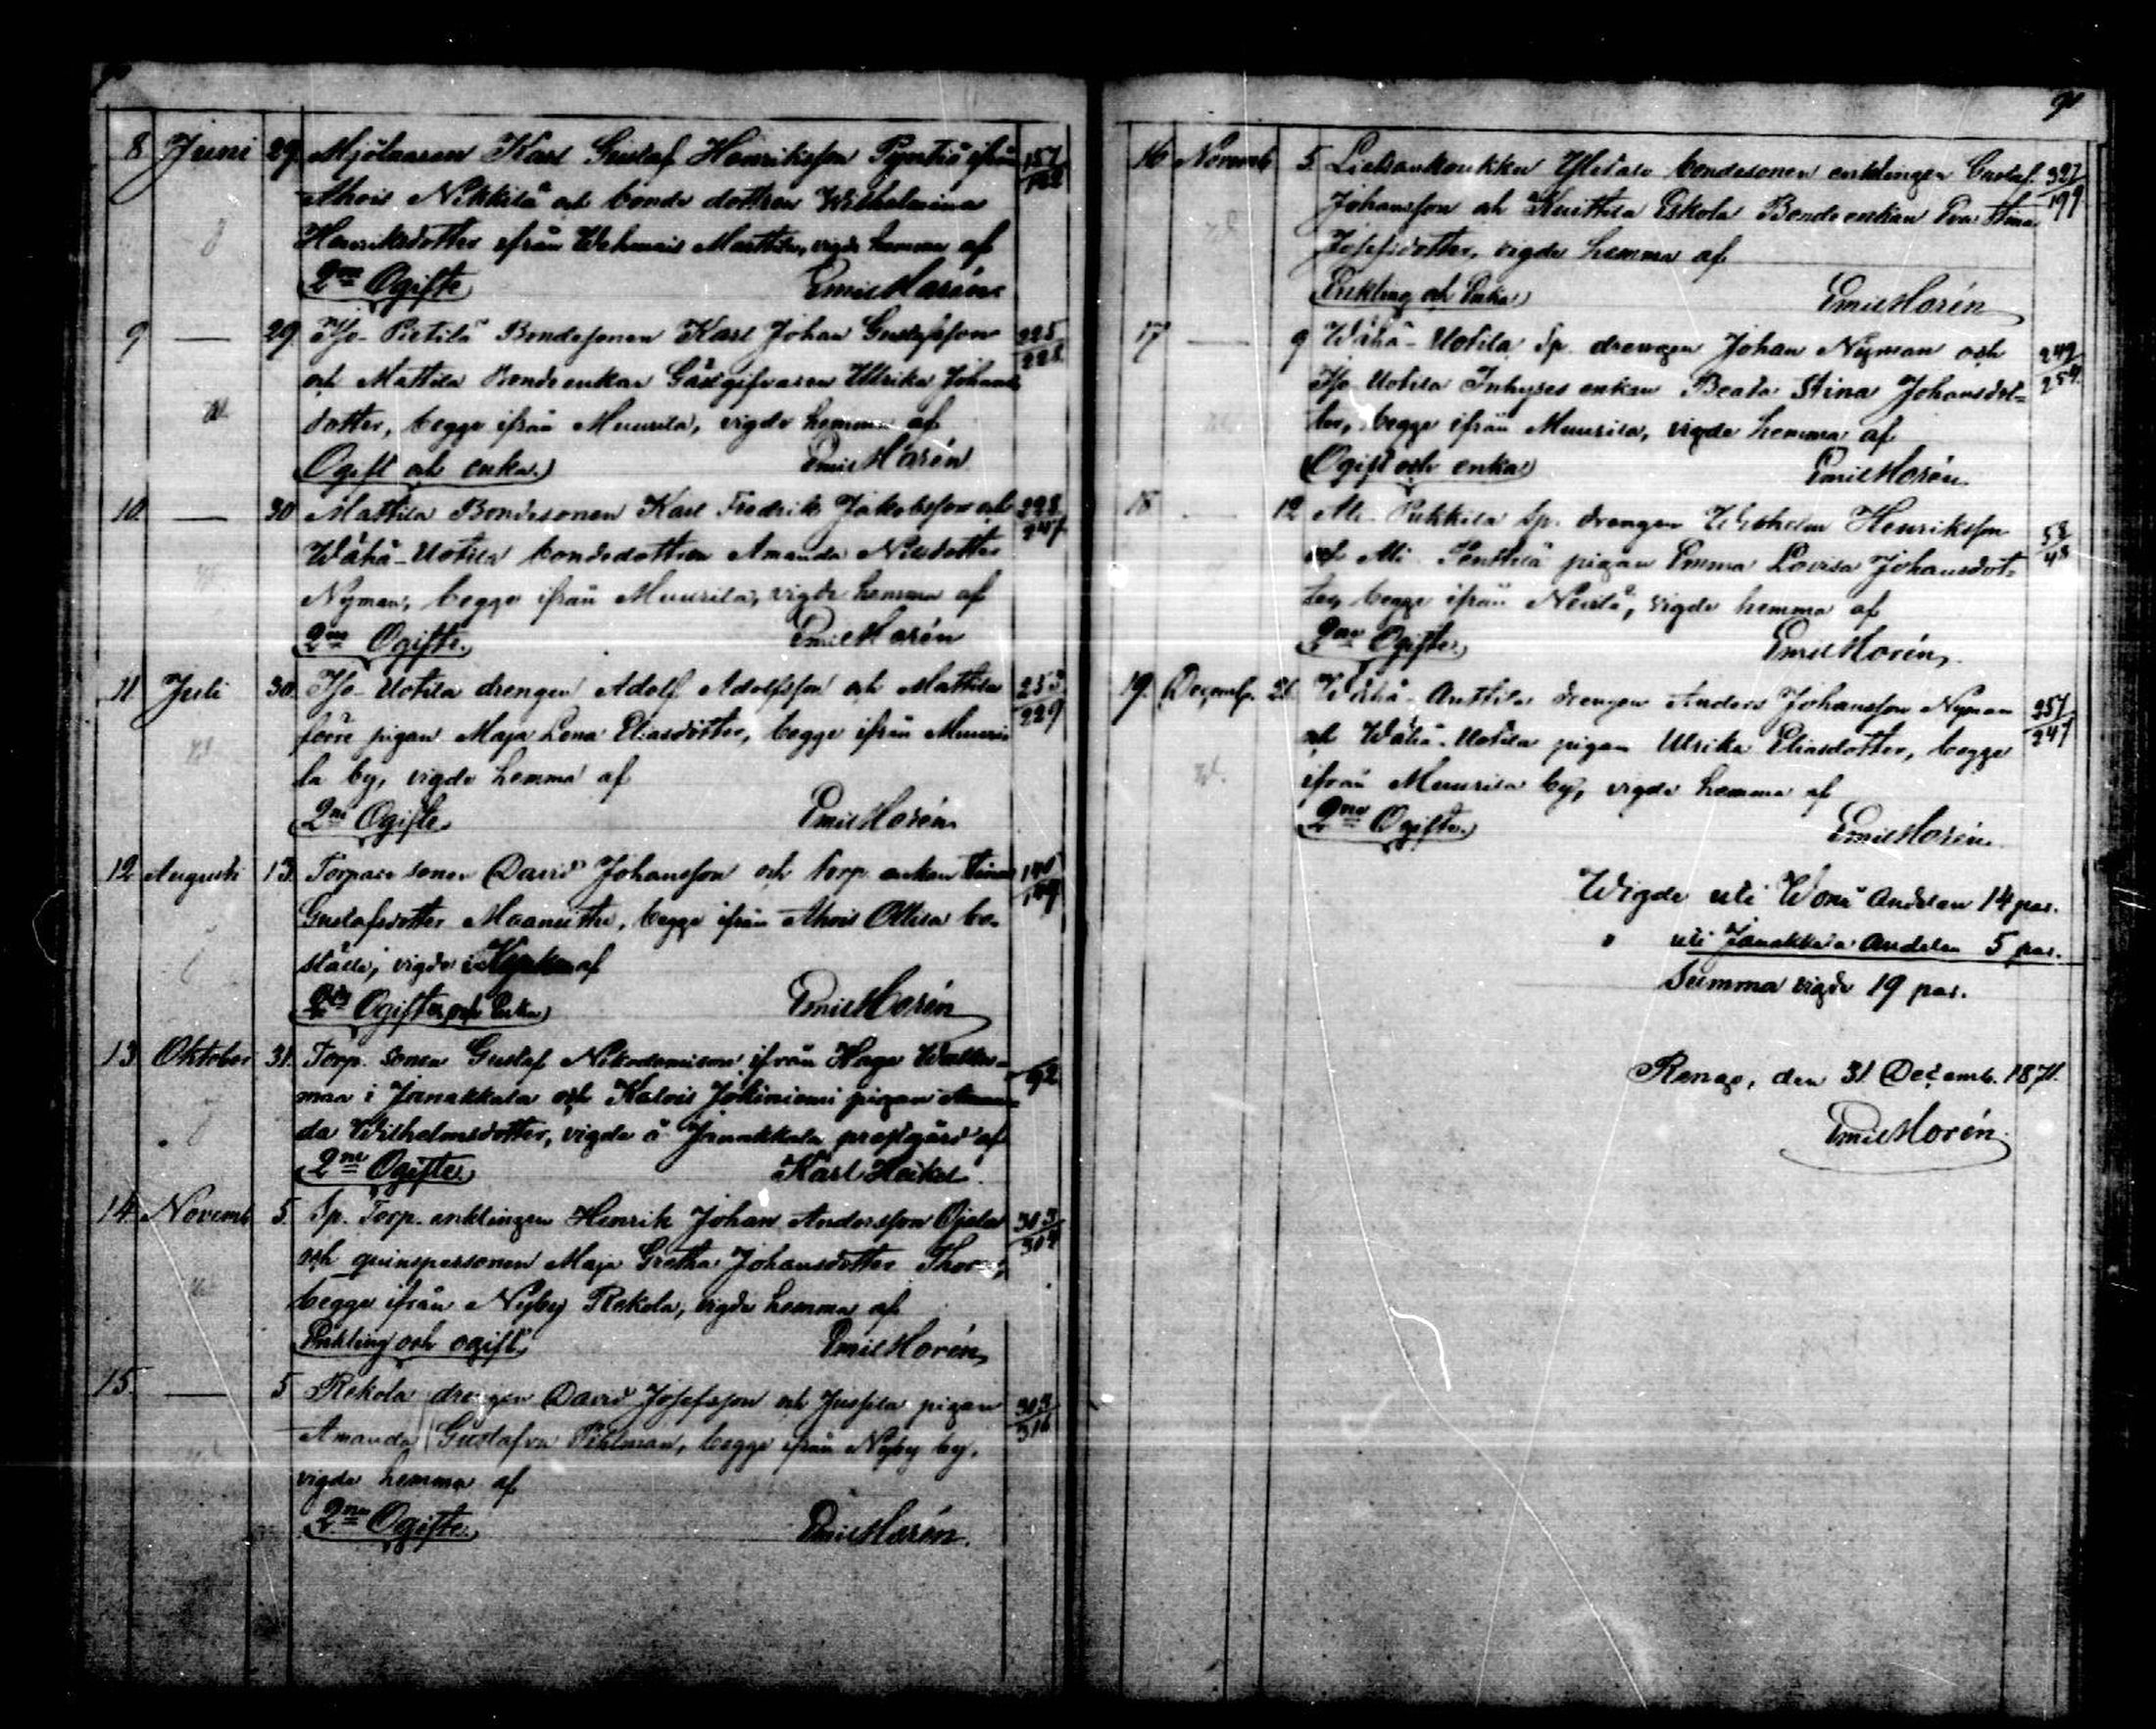 8 Juni 29. Mjölnaren Karl Gustaf Henriksson Pyntiö ifrån 157/122
Ahois Nikkilä och bonde dottren Wilhelmina
Henriksdotter ifrån Wehmais Marttila, vigde hemma af
2ne Ogifte Emil Horén
9 — 29 Iso-Pietilä Bondesonen Karl Johan Gustafsson 225/228
och Mattila Bonde enkan Gästgifvaren Ulrika Johans
dotter, begge ifrån Muurila, vigde hemma af
Ogift och enka. Emil Horén
10. — 30 Mattila Bondesonen Karl Fredrik Jakobsson och 228/247
Wähä-Uotila bondedottren Amanda Nilsdotter
Nyman, begge ifrån Muurila, vigde hemma af
2ne Ogifte. Emil Horén
11 Juli 30. Iso-Uotila drengen Adolf Adolfsson och Mattila 253/229
förre pigan Maja Lena Eliasdotter, begge ifrån Muuri
la by, vigde hemma af
2ne Ogifte Emil Horén
12 Augusti 13. Torpare sonen David Johansson och torp. enkan Stina 140/149
Gustafsdotter Maanitthu, begge ifrån Ahois Ollila bo-
ställe, vigde i Kyrkan af
Ogift och Enka Emil Horén
13 Oktober 31. Torp. sonen Gustaf Nikodemison ifrån Haga 92
maa i Janakkala och Kalois Jokiniemi pigan Aman
da Wilhelmsdotter, vigde å Janakkala prestgård af
2ne Ogifte. Karl Heikel.
14. Novemb 5. Sp. Torp. enklingen Henrik Johan Andersson Ojala 303/304
och qvinspersonen Maja Gretha Johansdotter
begge ifrån Nyby Rekola, vigde hemma af
Enkling och ogift. Emil Horén
15. — 5 Rekola drengen David Josefsson och Jussila pigan 303/316
Amanda Gustafva Pihlman, begge ifrån Nyby by,
vigde hemma af
2ne Ogifte. Emil Horén.
16 Novemb 5 Lietsankoukku Yletalo bondesonen enklingen Gustaf 327/199
Johansson och Knuttila Eskola Bonde enkan Eva Stina
Josefsdotter, vigde hemma af
Enkling och Enka Emil Horén
17 — 9 Wähä-Uotila Sp. drengen Johan Nyman och 249/254
Iso Uotila Inhyses enkan Beata Stina Johansdot=
ter, begge ifrån Muurila, vigde hemma af
Ogift och enka Emil Horén.
18 12 Ali-Pukkila Sp. drengen Wilhelm Henriksson 58/48
och Ali-Penttilä pigan Emma Lovisa Johansdot-
ter, begge ifrån Nevilä, vigde hemma af
2ne Ogifte. Emil Horén.
19. Decemb. 26. Wähä-Anttila drengen Anders Johansson Nyman 257/247
och Wähä-Uotila pigan Ulrika Eliasdotter, begge
ifrån Muurila by, vigde hemma af
2ne Ogifte. Emil Horén.
Wigde uti Wånå Andelen 14 par.
" uti Janakkala Andelen 5 par.
Summa vigde 19 par.
Rengo, den 31 Decemb. 1871.
Emil Horén.